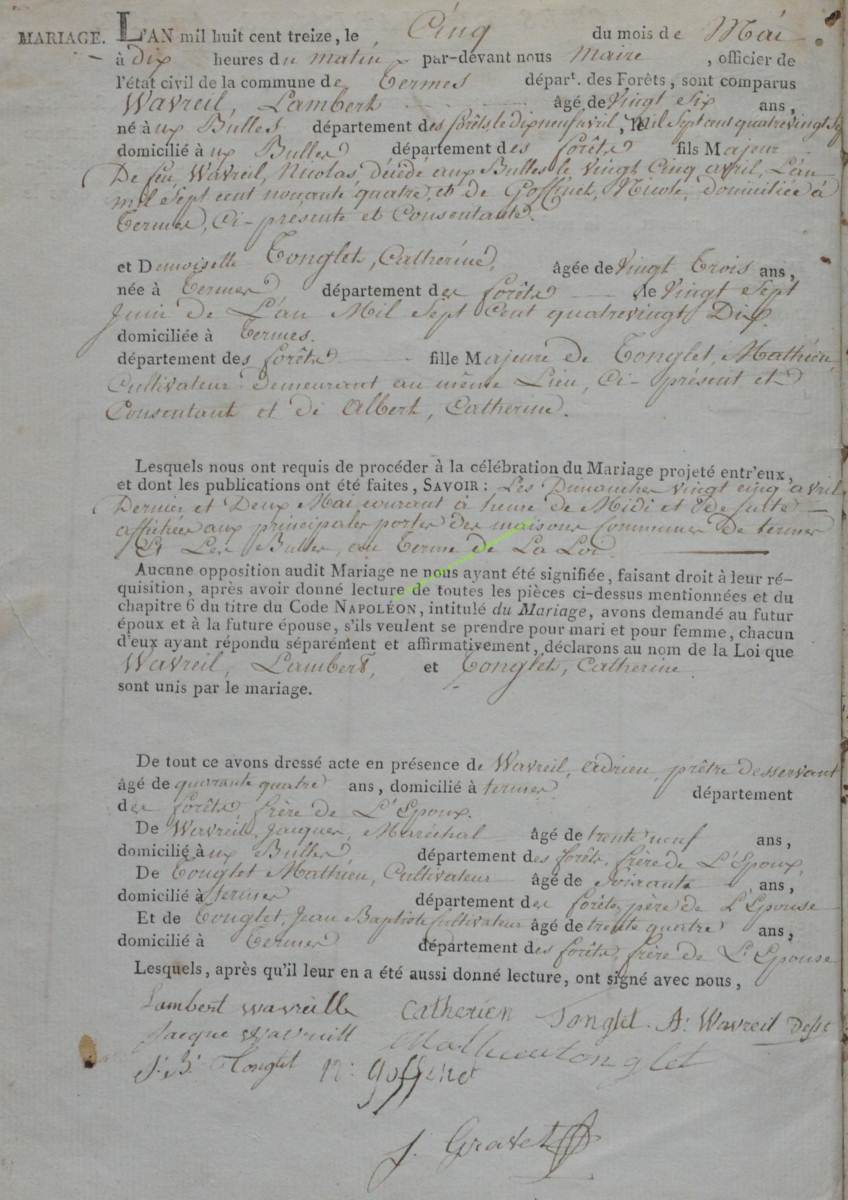 MARIAGE. L'AN mil huit cent treize, le Cinq du mois de Mai
à dix heures du matin par-devant nous Maire, officier de
l'état civil de la commune de Termes départ. des Forêts, sont comparus
Wavreil, Lambert âgé de Vingt Six ans,
né à ux Bulles département des forêts, le dix neuf avril, Mil Sept cent quatre vingt Sept
domicilié à ux Bulles département des forêts fils Majeur
De feu Wavreil, Nicolas, décédé aux Bulles le Vingt Cinq avril, L'an
mil Sept cent nonante quatre, et de Goffinet, Nicole, domiciliée à
Termes, Ci-présente et Consentante.
et Demoiselle Tonglet, Catherine, âgée de Vingt Trois ans,
née à Termes département des forêts le Vingt Sept
Juin de L'an Mil Sept Cent quatrevingt Dix.
domiciliée à Termes.
département des forêts fille Majeure de Tonglet, Mathieu,
Cultivateur demeurant au même Lieu, Ci-présent et
Consentant et de Albert, Catherine.
Lesquels nous ont requis de procéder à la célébration du Mariage projeté entr'eux,
et dont les publications ont été faites, SAVOIR: Les Dimanches vingt cinq avril
Dernier et Deux Mai courant à heure de Midi et de suite
affichées aux principales portes des maisons Communes de termes
Et Les Bulles, au Terme de La Loi.
Aucune opposition audit Mariage ne nous ayant été signifiée, faisant droit à leur ré-
quisition, après avoir donné lecture de toutes les pièces ci-dessus mentionnées et du
chapitre 6 du titre du Code NAPOLÉON, intitulé du Mariage, avons demandé au futur
époux et à la future épouse, s'ils veulent se prendre pour mari et pour femme, chacun
d'eux ayant répondu séparément et affirmativement, déclarons au nom de la Loi que
Wavreil, Lambert, et Tonglet, Catherine.
sont unis par le mariage.
De tout ce avons dressé acte en présence de Wavreil, adrien, prêtre desservant
âgé de quarante quatre ans, domicilié à termes département
des forêts frère de L'Epoux.
De Wavreil, Jacques, Maréchal âgé de trente neuf ans,
domicilié à ux Bulles département des forêts, frère de L'Epoux,
De Tonglet Mathieu, Cultivateur âgé de Soixante ans,
domicilié à termes département des forêts, père de L'Epouse
Et de Tonglet, Jean Baptiste Cultivateur âgé de trente quatre ans,
domicilié à Termes département des forêts, frère de L'Epouse
Lesquels, après qu'il leur en a été aussi donné lecture, ont signé avec nous,
Lambert wavreille Catherien Tonglet. A: Wavreil Desst
Jacque wavreill Mathieu tonglet
J. B. Tonglet n: goffinet
J. Gravet